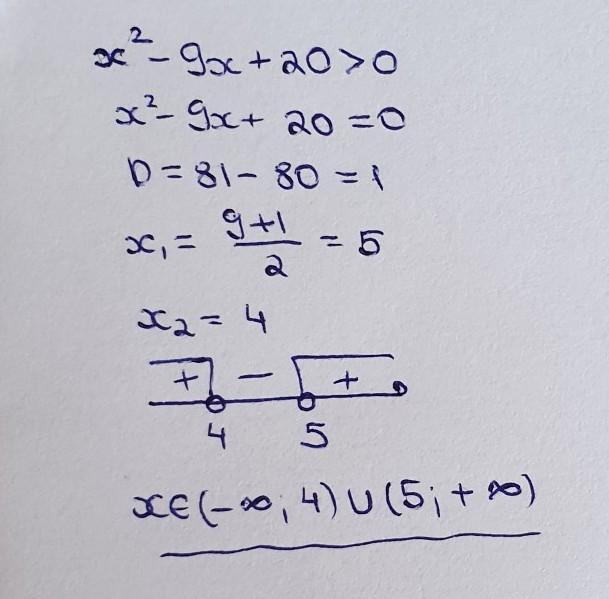 x² - 9x + 20 > 0
x² - 9x + 20 = 0
D = 81 - 80 = 1
x₁ = (9+1)/2 = 5
x₂ = 4
+ − +
4 5
x∈(-∞; 4)∪(5; +∞)